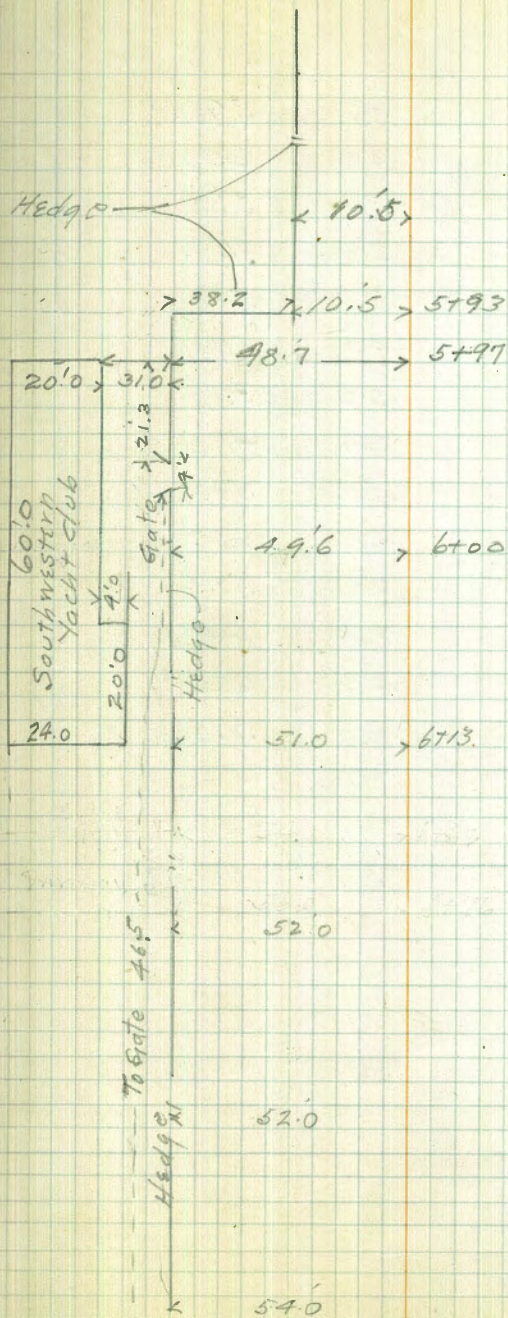 Hedge
10.5
38.2 10.5 5+93
48.7 5+97
20.0 31.0
21.3
4.2
Gate
60.0
Southwestern
Yacht Club
49.6 6+00
4.0
Hedge
20.0
24.0
51.0 6+13.
"
"
52.0
To Gate 46.5
Hedge
52.0
54.0